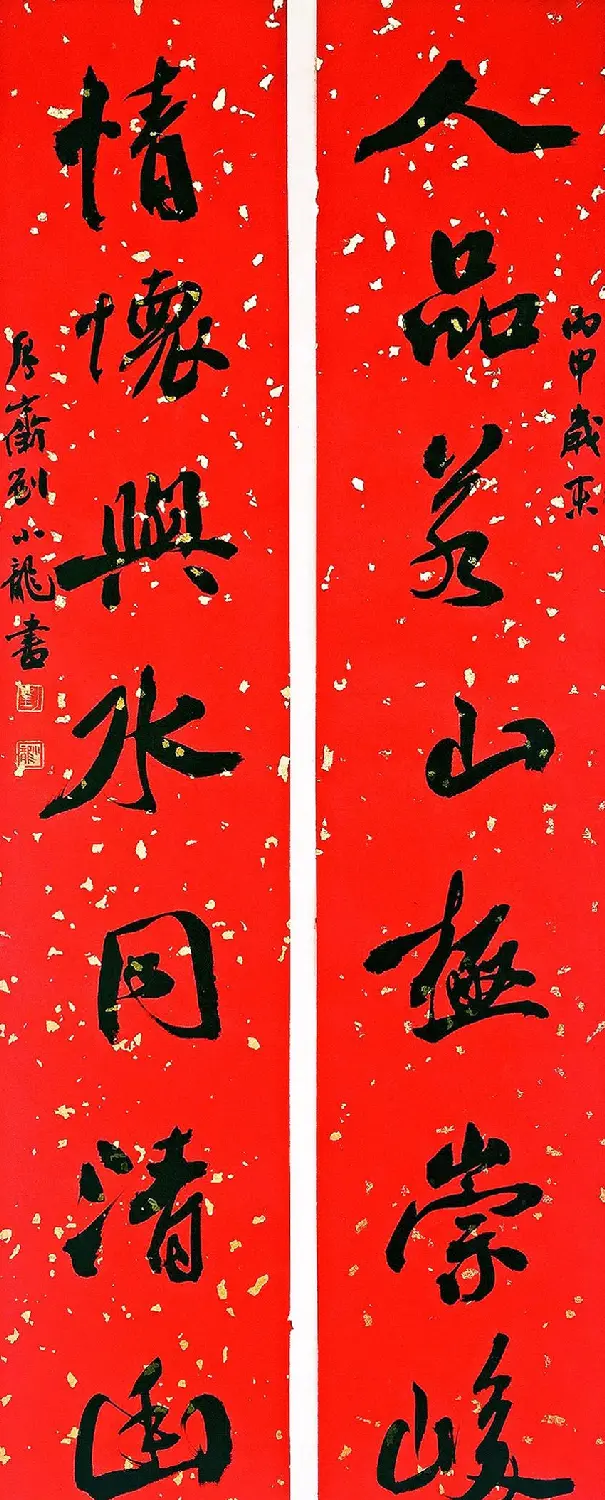 人品若山極崇峻
丙申歲末
情懷與水同清幽
齋劉小龍書